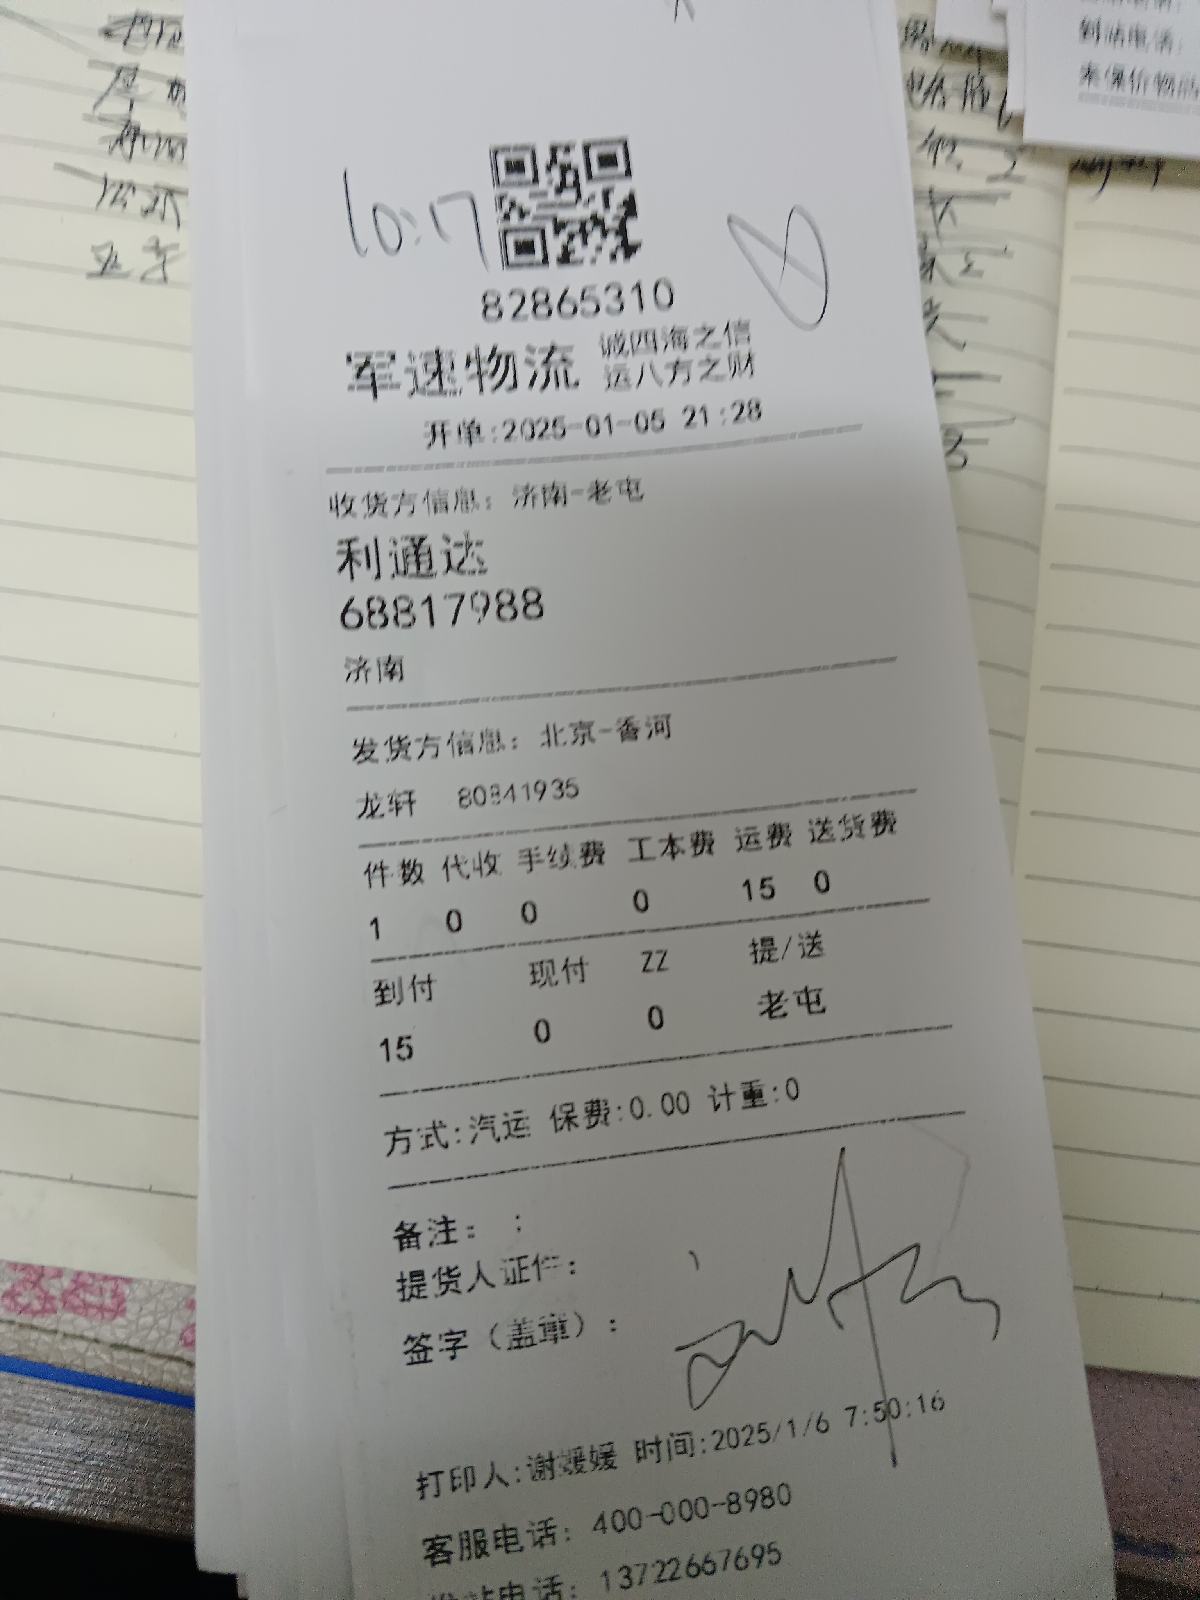 10:17
82865310
军速物流 诚四海之信
运八方之财
开单:2025-01-05 21:28
收货方信息: 济南-老屯
利通达
68817988
济南
发货方信息: 北京-香河
龙轩 80841935
件数 代收 手续费 工本费 运费 送货费
1 0 0 0 15 0
到付 现付 ZZ 提/送
15 0 0 老屯
方式:汽运 保费:0.00 计重:0
备注: ;
提货人证件:
签字(盖章):
打印人:谢媛媛 时间:2025/1/6 7:50:16
客服电话: 400-000-8980
站电话: 13722667695
到站电话:
未保价物品